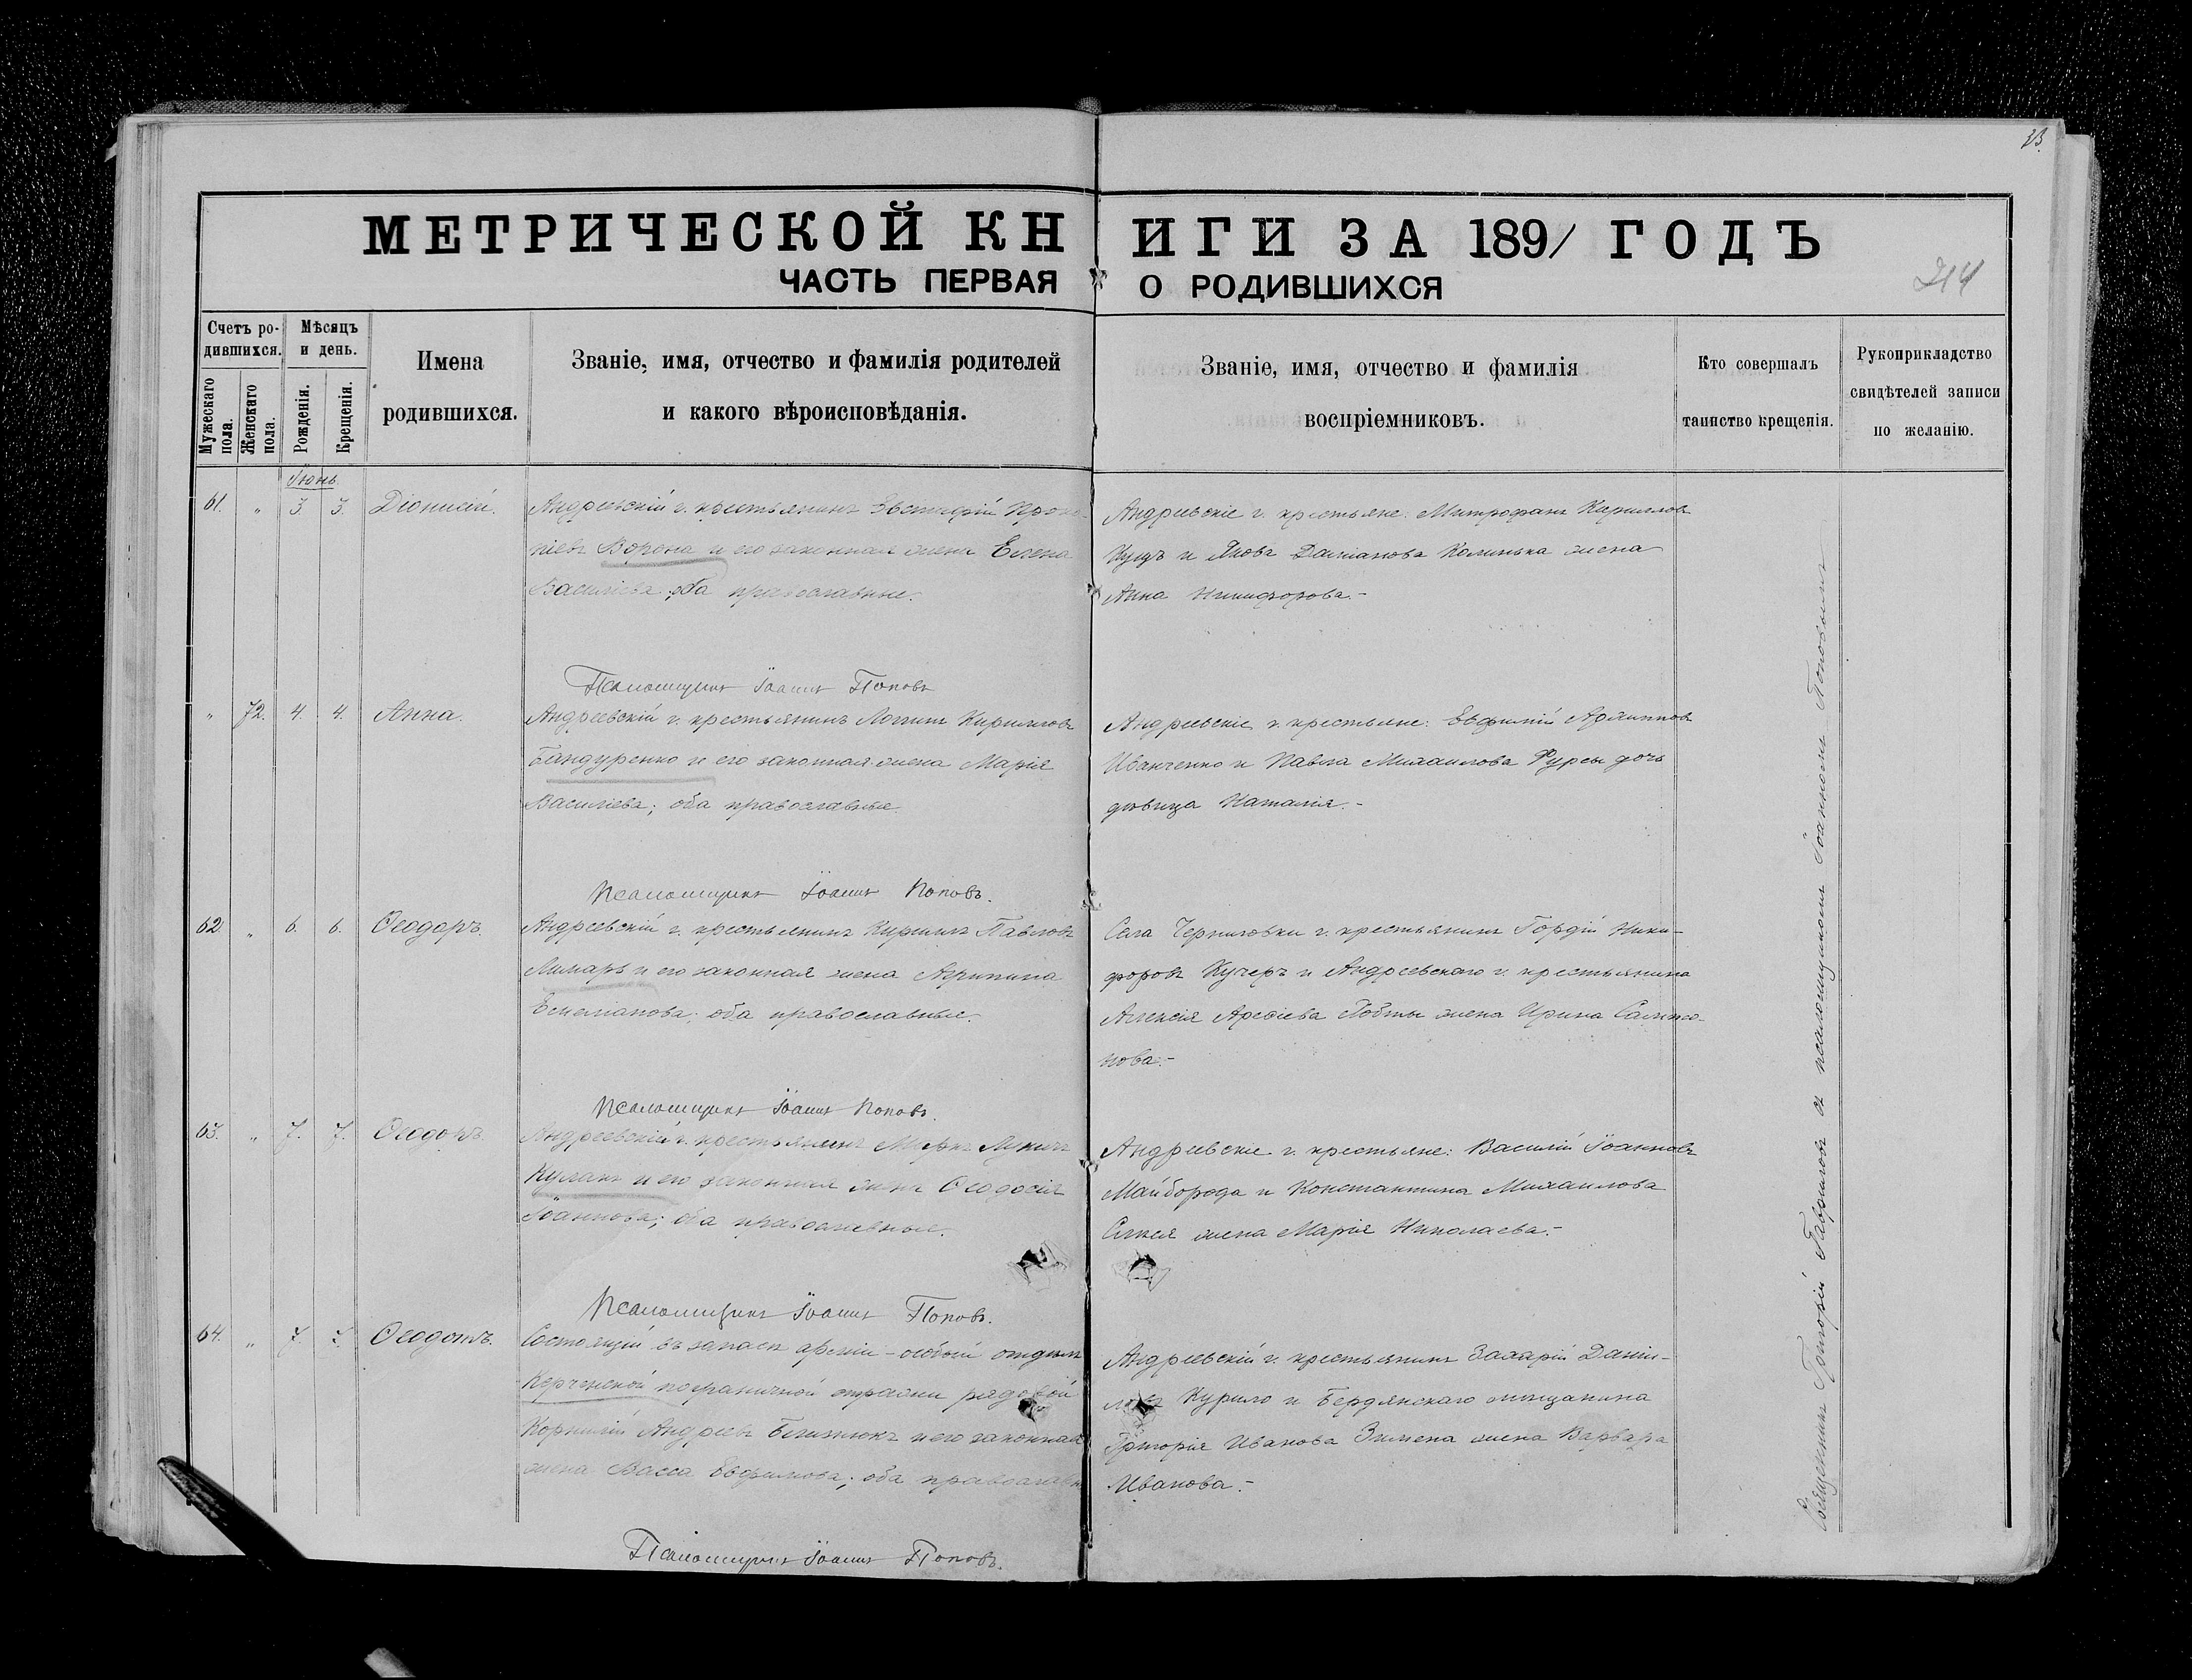 33.
МЕТРИЧЕСКОЙ КНИГИ ЗА 1891 ГОДЪ
ЧАСТЬ ПЕРВАЯ О РОДИВШИХСЯ
214
Счетъ родившихся.
Мужескаго пола.
Женскаго пола.
Мѣсяцъ и день.
Рожденія.
Крещенія.
Имена родившихся.
Званіе, имя, отчество и фамилія родителей
и какого вѣроисповѣданія.
Званіе, имя, отчество и фамилія
воспріемниковъ.
Кто совершалъ
таинство крещенія.
Рукоприкладство
свидѣтелей записи
по желанію.
Іюнь
61. „ 3. 3. Діонисій.
Андреевскій г. крестьянинъ Евстафій Проко-
піевъ Ворона и его законная жена Елена
Василіева; оба православные.
Андреевскіе г. крестьяне: Митрофанъ Кирилловъ
и Якова Даміанова жена
Анна Никифорова.-
Псаломщикъ Іоаннъ Поповъ
„ 72. 4. 4. Анна.
Андреевскій г. крестьянинъ Логгинъ Кирилловъ
Бандуренко и его законная жена Марія
Василіева; оба православные
Андреевскіе г. крестьяне: Евфимій Архипповъ
Иванченко и Павла Михаилова Фурсы дочь
дѣвица Наталія.-
Псаломщикъ Іоаннъ Поповъ.
62 „ 6. 6. Ѳеодоръ.
Андреевскій г. крестьянинъ Кириллъ Павловъ
Лимарь и его законная жена Агрипина
Емеліанова; оба православные.
Села Черниговки г. крестьянинъ Гордій Ники-
форовъ Кучеръ и Андреевскаго г. крестьянина
Алексія Арефіева жена Ирина
нова.-
Псаломщикъ Іоаннъ Поповъ.
63. „ 7. 7. Ѳеодоръ.
Андреевскій г. крестьянинъ Лукинъ
Кулакъ и его законная жена Ѳеодосія
Іоаннова; оба православные.
Андреевскіе г. крестьяне: Василій Іоанновъ
Майборода и Константина Михаилова
жена Марія Николаева.-
Псаломщикъ Іоаннъ Поповъ.
64. „ 7. 7. Ѳеодотъ.
Состоящій въ запасѣ арміи
Керченской пограничной стражи рядовой
Корнилій Андреевъ и его законная
жена Васса Евфимова; оба православн
Андреевскій г. крестьянинъ Захарій Даніи-
ловъ Курило и Бердянскаго мѣщанина
Григорія Иванова жена Варвара
Иванова.-
Псаломщикъ Іоаннъ Поповъ.
Священникъ Григорій Гавриловъ съ псаломщикомъ Іоанномъ Поповымъ